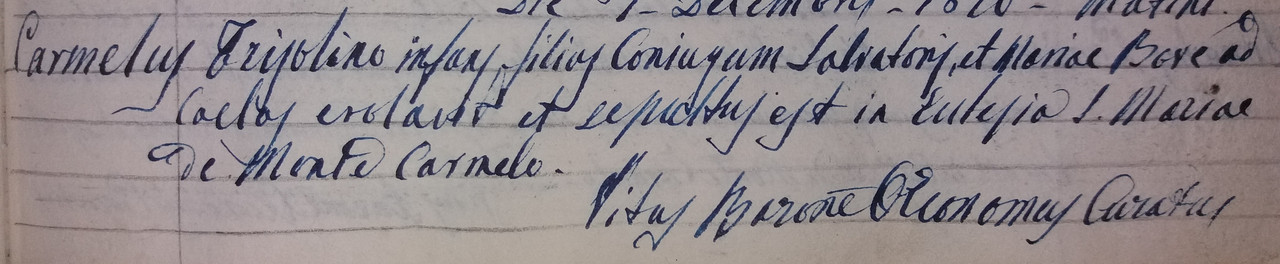 Die 1 Decembris - 18 - Matini.
Carmelus Trisolino infans filius Coniugum Salvatoris, et Mariae Bove ad
Caelos evolavit et sepultus est in Eclesia S. Mariae
de Monte Carmelo.
Vitus Barone Oeconomus Curatus